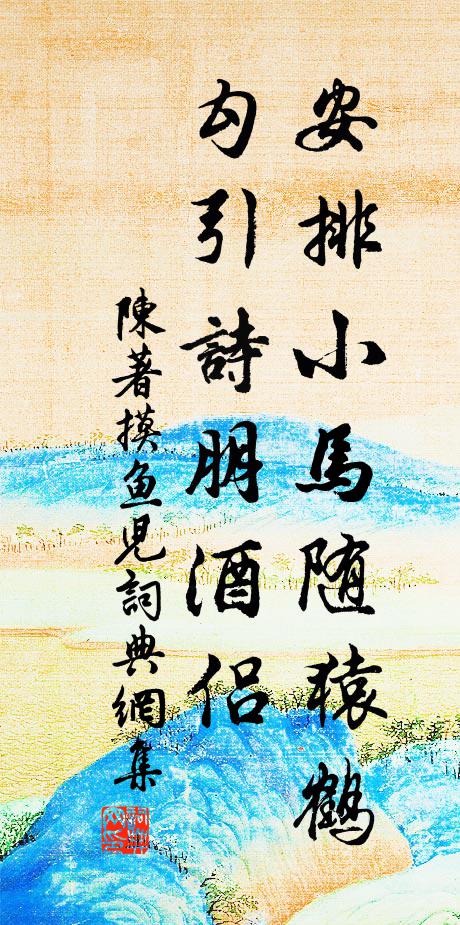 安排小馬随猿鶴
勾引詩朋酒侣
陳著摸鱼兒詞典網集